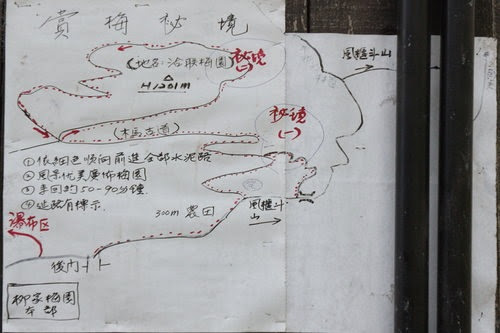 賞梅秘境
風櫃斗山
(地名:洽联梅園)
秘境
(二)
H1201m
秘境
(一)
(木馬古道)
①依紅色順向前進全部水泥路
②風景优美廣佈梅園
③来回約50-90分鐘
④延路有標示.
300m 農田
風櫃斗
山
瀑布区
後門
柳家梅園
本部